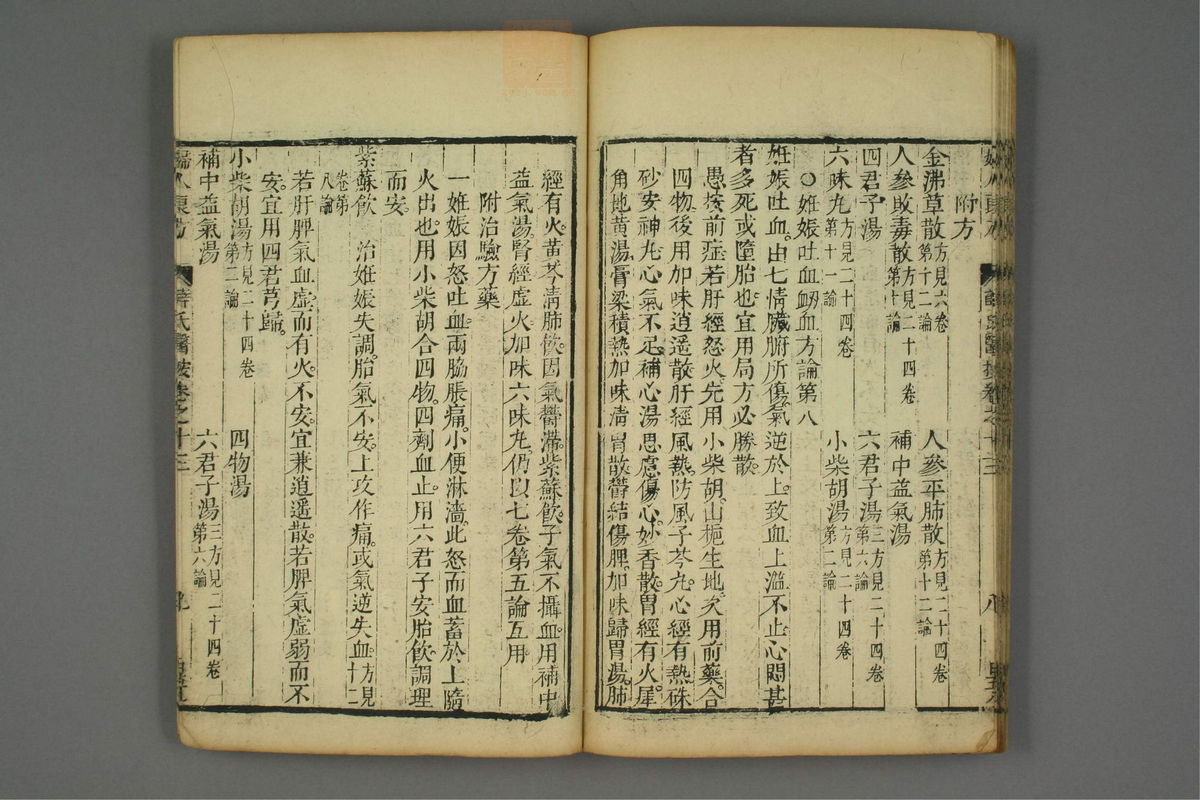 附方
金沸草散方見六卷第十二論 人參平肺散方見二十四卷第十二論
人參敗毒散方見二十四卷第十論 補中益氣湯
四君子湯 六君子湯三方見二十四卷第六論
六味丸方見二十四卷第十一論 小柴胡湯方見二十四卷第二論
○妊娠吐血衂血方論第八
妊娠吐血由七情臟腑所傷氣逆於上致血上溢不止心悶甚
者多死或墮胎也宜用局方必勝散
愚按前症若肝經怒火先用小柴胡山梔生地次用前藥合
四物後用加味逍遥散肝經風熱防風子芩丸心經有熱硃
砂安神丸心氣不足補心湯思慮傷心妙香散胃經有火犀
角地黃湯膏粱積熱加味清胃散鬱結傷脾加味歸胃湯肺
經有火黃芩清肺飲因氣鬱滯紫蘇飲子氣不攝血用補中
益氣湯腎經虛火加味六味丸仍以七卷第五論互用
附治驗方藥
一妊娠因怒吐血兩脇脹痛小便淋濇此怒而血蓄於上隨
火出也用小柴胡合四物四劑血止用六君子安胎飲調理
而安
紫蘇飲 治妊娠失調胎氣不安上攻作痛或氣逆失血方見十二
卷第八論
若肝脾氣血虛而有火不安宜兼逍遥散若脾氣虛弱而不
安宜用四君芎歸
小柴胡湯方見二十四卷第二論 四物湯
補中益氣湯 六君子湯三方見二十四卷第六論
婦人良方 薛氏醫按卷之十三